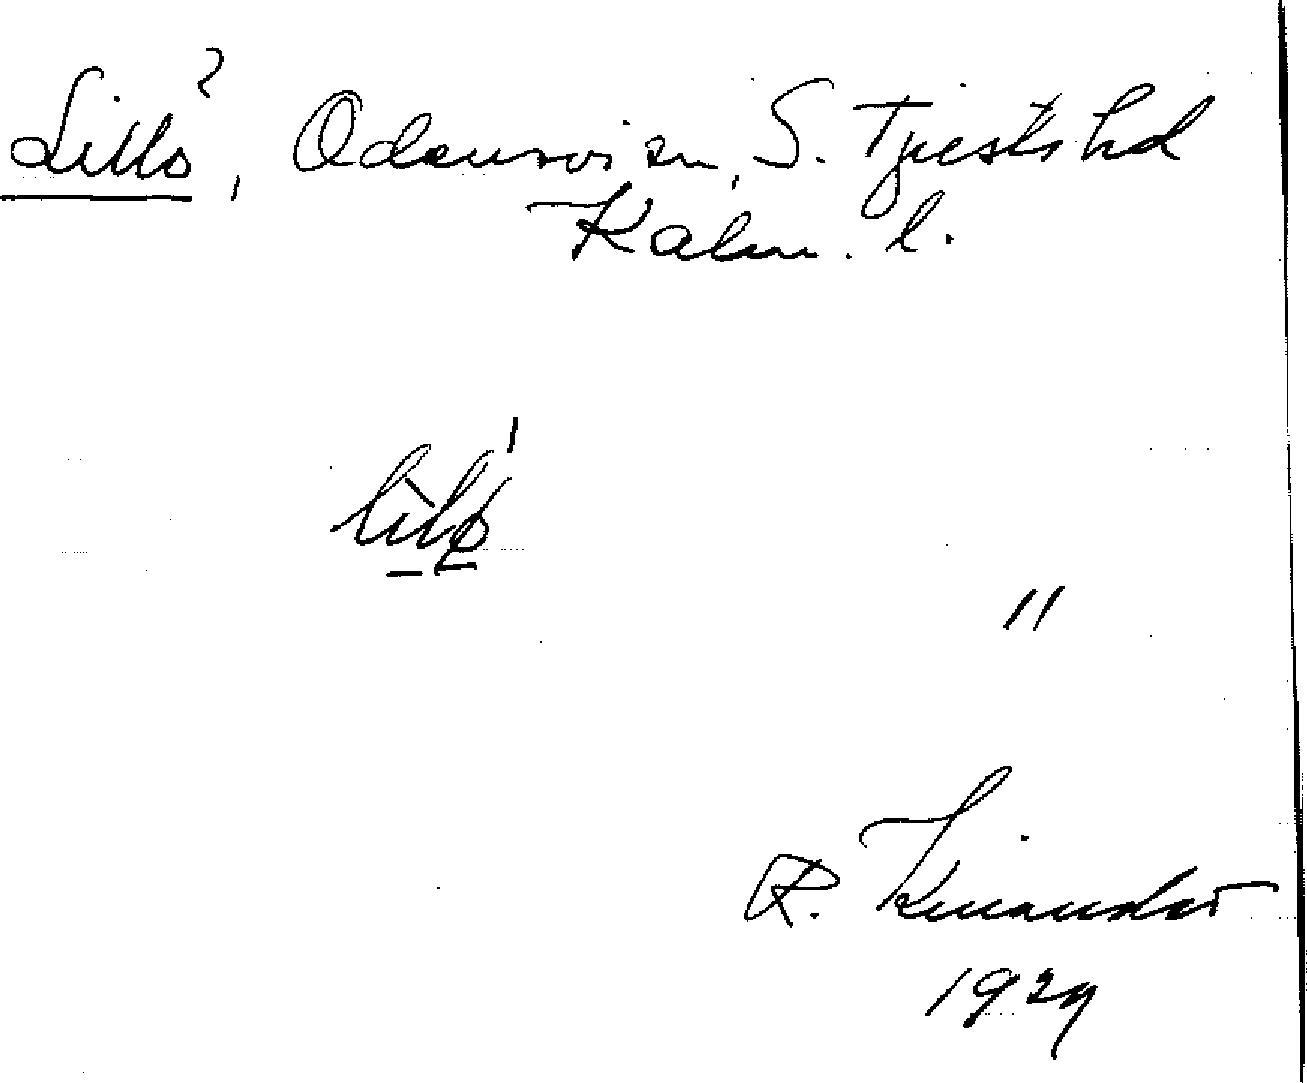 Lillö?, Odensvi sn, S. Tjusts hd
Kalm. l.
"
R. Kinander
1929